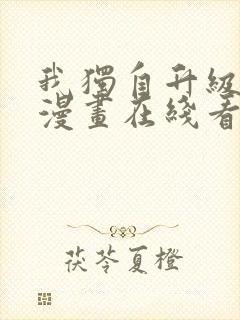 我獨自升級
漫畫在綫看
茯苓夏橙